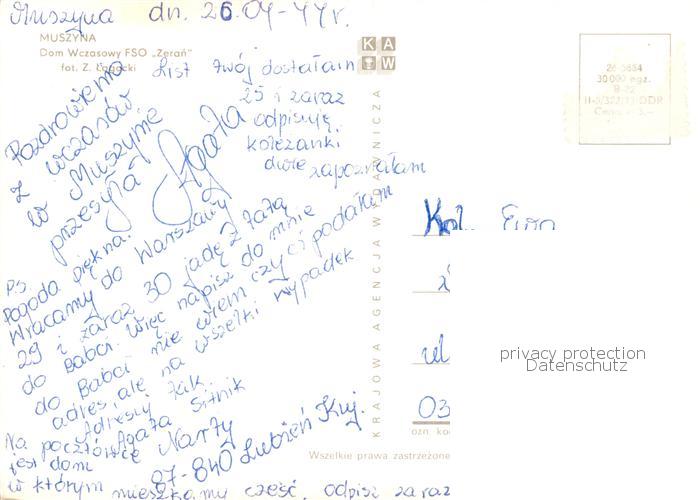 Muszyna dn. 26.04-77r.
MUSZYNA
Dom Wczasowy FSO „Żerań”
fot. Z. Łagocki
KAW
List twój dostałam
25 i zaraz
odpisuję.
koleżanki
dwie zapoznałam
Pozdrowienia
z wczasów
w Muszynie
przesyła Agata
PS.
Pogoda piękna.
Wracamy do Warszawy
29 i zaraz 30 jadę z Tatą
do Babci. więc napisz do mnie
do Babci nie wiem czy ci podałam
adres, ale na wszelki wypadek
Adresuj tak.
Agata Sitnik
Narty
87-840 Lubień Kuj.
Na pocztówce
jest dom
w którym mieszkamy cześć. odpisz zaraz
KRAJOWA AGENCJA WYDAWNICZA
26-5654
30 000 egz.
Cena
Kol. Ewa
ul
03
Wszelkie prawa zastrzeżone
privacy protection
Datenschutz